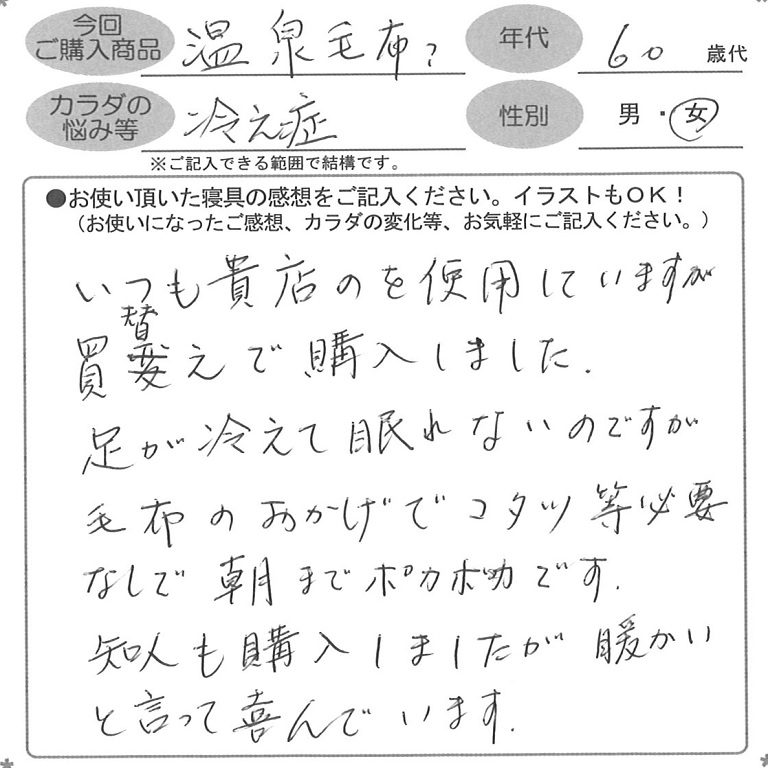 今回
ご購入商品
温泉毛布?
年代
60
歳代
カラダの
悩み等
冷え症
性別
男・女
※ご記入できる範囲で結構です。
●お使い頂いた寝具の感想をご記入ください。イラストもOK!
(お使いになったご感想、カラダの変化等、お気軽にご記入ください。)
いつも貴店のを使用していますが
替
買変えで購入しました.
足が冷えて眠れないのですが
毛布のおかげでコタツ等必要
なしで朝までポカポカです.
知人も購入しましたが暖かい
と言って喜んでいます.